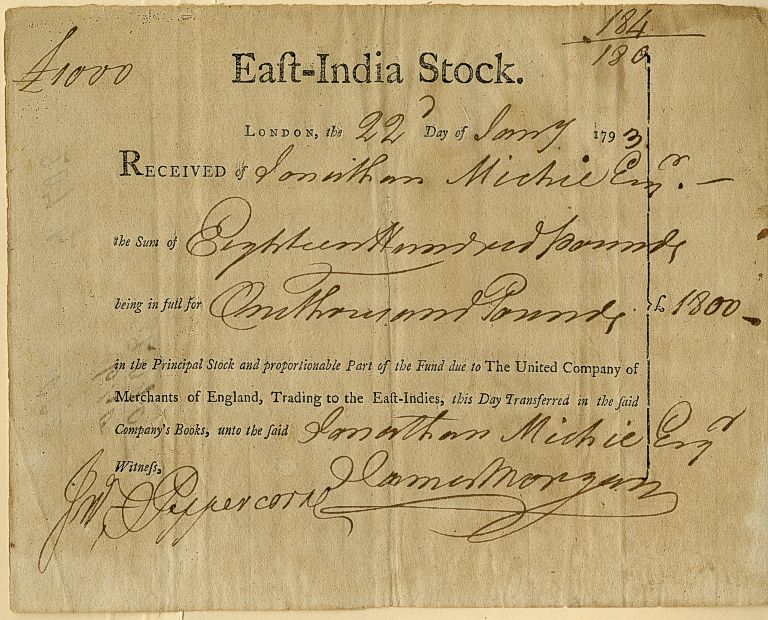 184
180
£1000
Eaſt-India Stock.
LONDON, the 22d Day of Janry. 1793.
RECEIVED of Jonathan Michie Esqr. —
the Sum of Eighteen Hundred pounds
being in full for One thousand Pounds £ 1800 —
in the Principal Stock and proportionable Part of the Fund due to The United Company of
Merchants of England, Trading to the Eaſt-Indies, this Day Transferred in the ſaid
Company's Books, unto the ſaid Jonathan Michie Esqr
Witneſs,
Peppercorne James Morgan